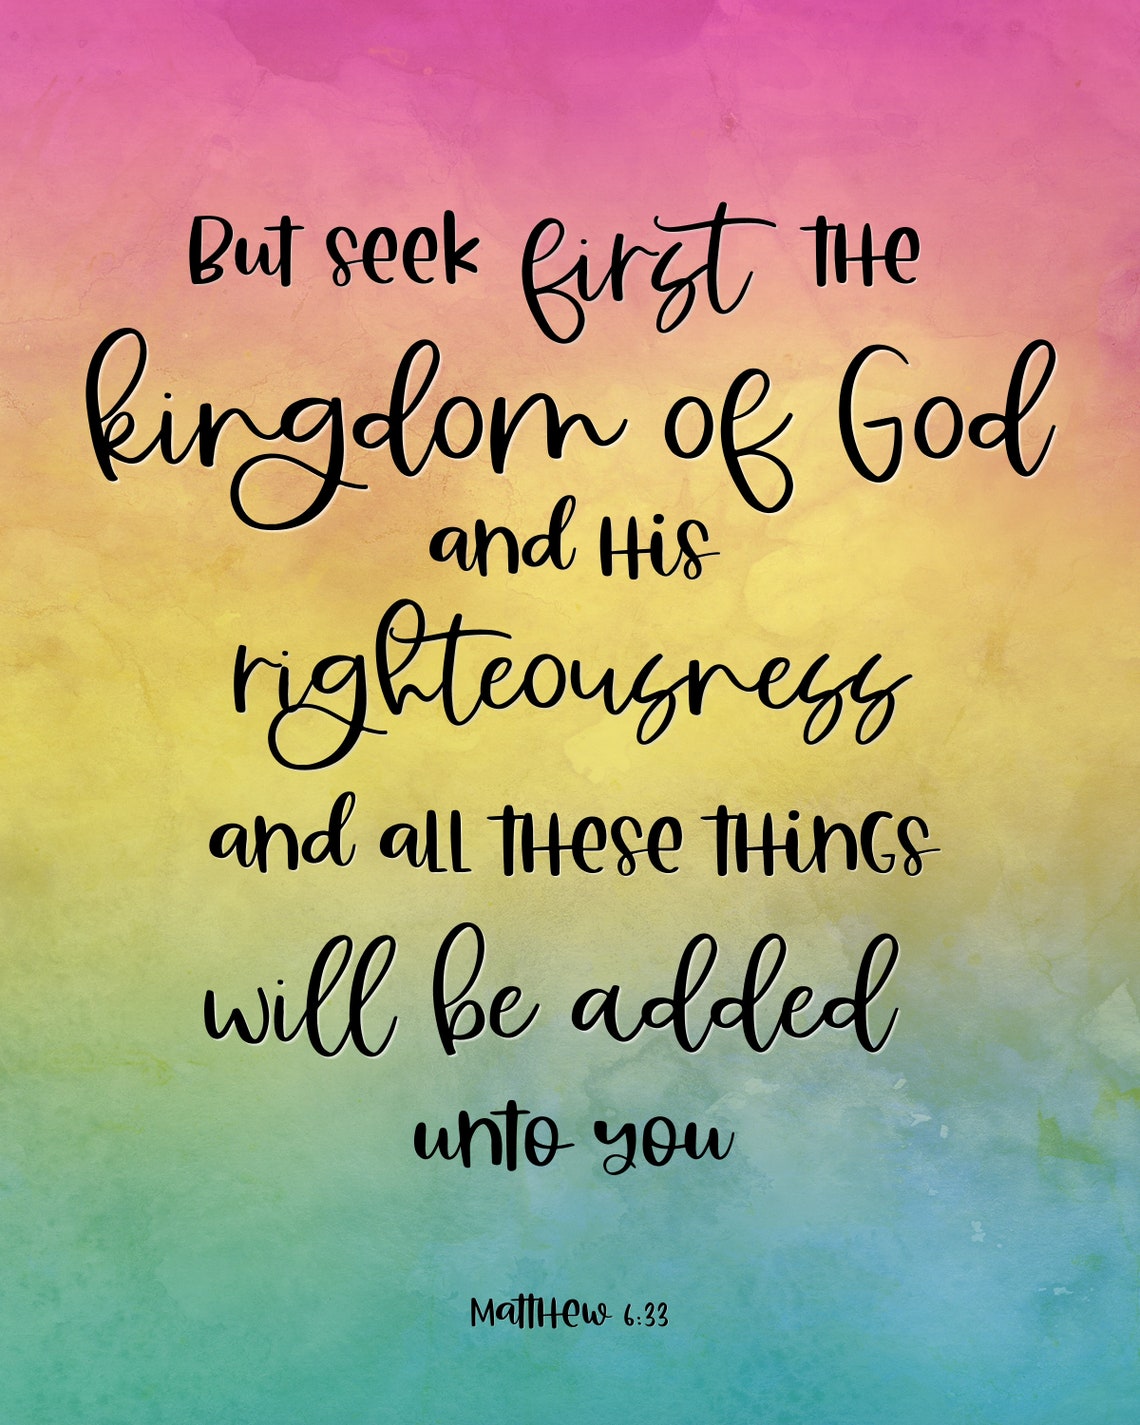 But seek first the
kingdom of God
and His
righteousness
and all these things
will be added
unto you
Matthew 6:33